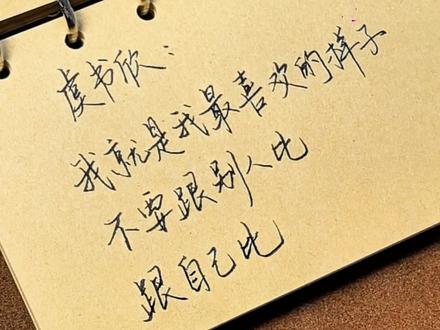 虞书欣：
我就是我最喜欢的样子
不要跟别人比
跟自己比